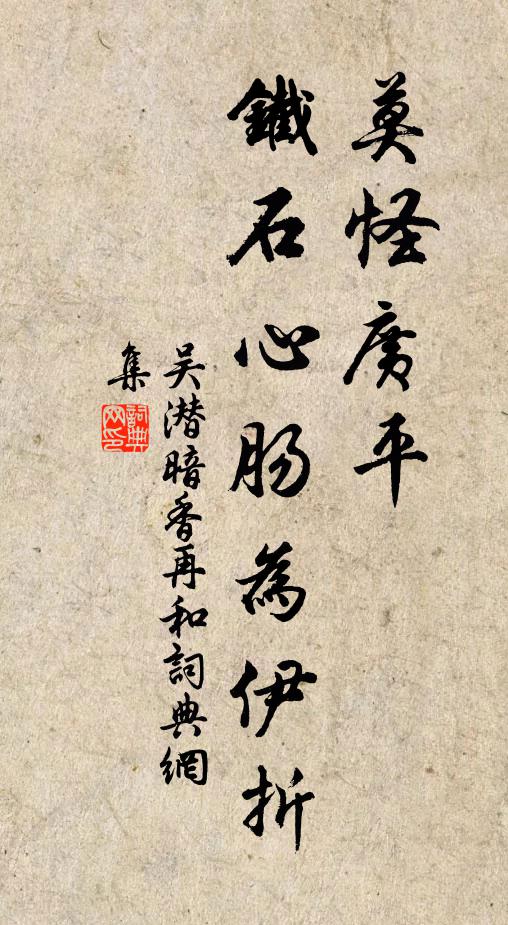 莫怪廣平
鐵石心腸為伊折
吴潜暗香再和詞典網
集
詞典
网印